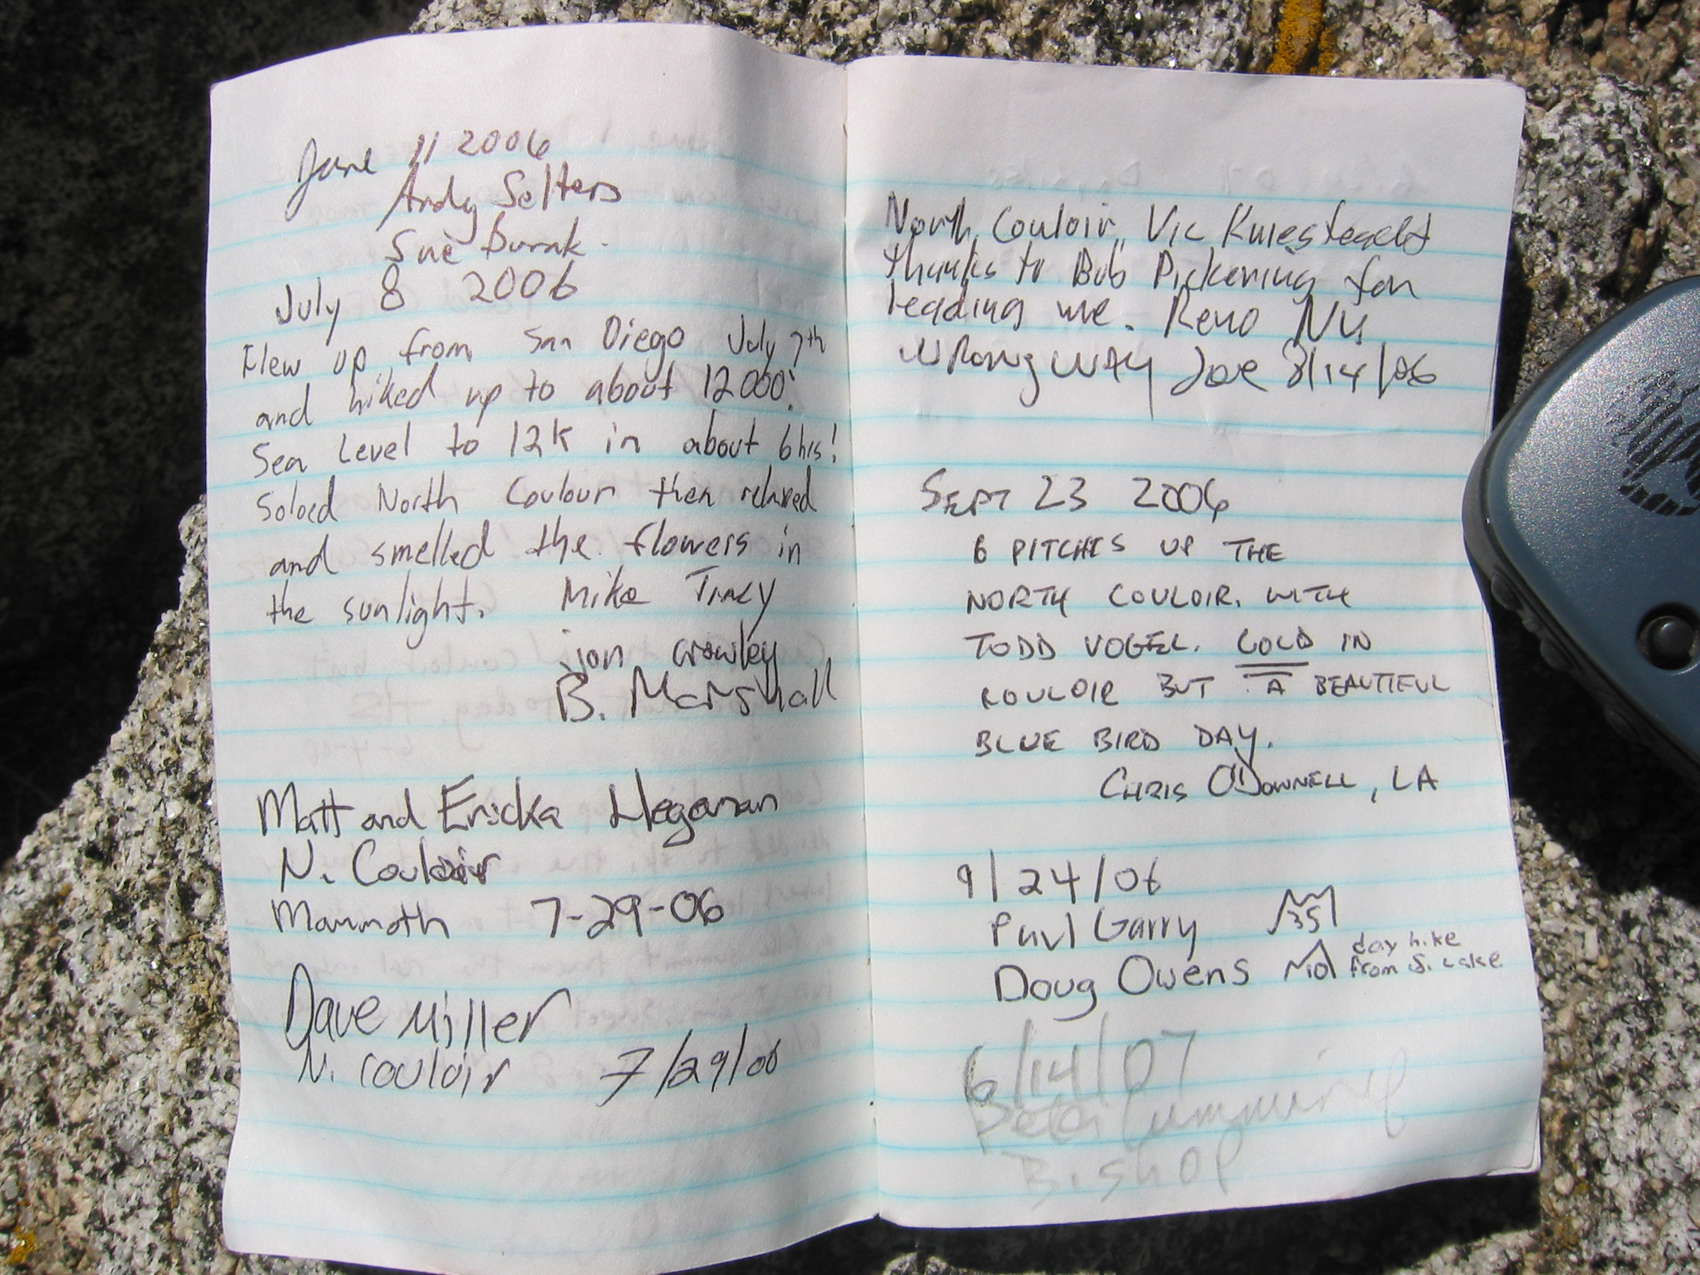 June 11 2006
Andy Selters
Sue Burak
July 8 2006
Flew up from San Diego July 7th
and hiked up to about 12000'.
Sea Level to 12K in about 6 hrs!
Soloed North Coulour then relaxed
and smelled the flowers in
the sunlight. Mike Tracy
jon crowley
B. Marshall
Matt and Ericka Hegeman
N. Couloir
Mammoth 7-29-06
Dave Miller
N. Couloir 7/29/06
North Couloir, Vic
thanks to Bob Pickering for
leading me. Reno NV
WRONG WAY Joe 8/14/06
SEPT 23 2006
6 PITCHES UP THE
NORTH COULOIR. WITH
TODD VOGEL. COLD IN
COULOIR BUT A BEAUTIFUL
BLUE BIRD DAY.
CHRIS O'DONNELL, LA
9/24/06
Paul Garry
Doug Owens day hike
from S. Lake
6/14/07
Cummings
Bishop